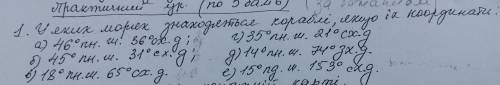 Практичний (по 5 балів) (за
1. У яких морях знаходяться кораблі, якщо їх координати:
а) 46° пн. ш. 36° сх. д; г) 35° пн. ш. 21° сх. д
б) 45° пн. ш. 31° сх. д; д) 14° пн. ш. 74° зх. д
в) 18° пн. ш. 65° сх. д. е) 15° пд. ш. 153° сх. д.
карті